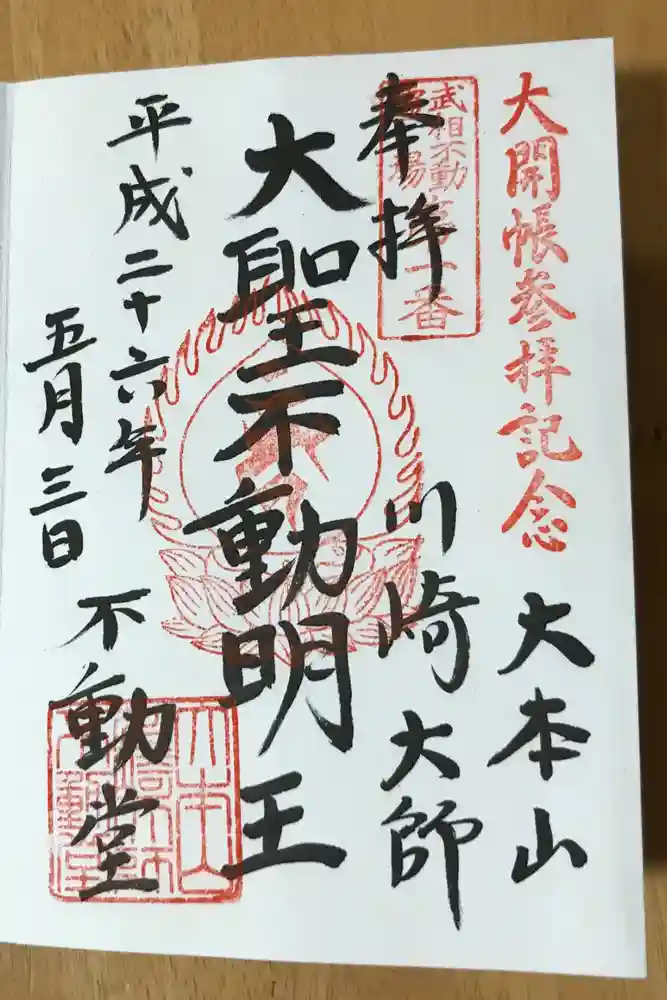 大開帳參拝記念
大本山
奉拝
武相不動
霊場
第一番
川崎大師
大聖不動明王
平成二十六年
五月三日
不動堂